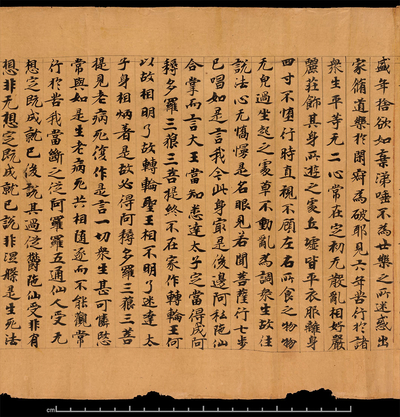 盛年捨欲如棄涕唾不為世樂之所迷惑出
家脩道樂於閑寂為破邪見六年苦行於諸
眾生平等无二心常在定初无散亂相好嚴
麗莊飾其身所遊之處丘墟皆平衣服離身
四寸不墮行時直視不顧左右所食之物物
无完過坐起之處草不動亂為調眾生故往
說法心无憍慢是名眼見若聞菩薩行七步
已唱如是言我今此身冣是後邊阿私陁仙
合掌而言大王當知悉達太子定當得成阿
耨多羅三藐三菩提終不在家作轉輪王何
以故相明了故轉輪聖王相不明了悉達太
子身相炳著是故必得阿耨多羅三藐三菩
提見老病死復作是言一切眾生甚可憐愍
常與如是生老病死共相隨逐而不能觀常
行於苦我當斷之從阿羅羅五通仙人受无
想定既成就已後說其過從欝陁仙受非有
想非无想定既成就已說非涅槃是生死法
cm